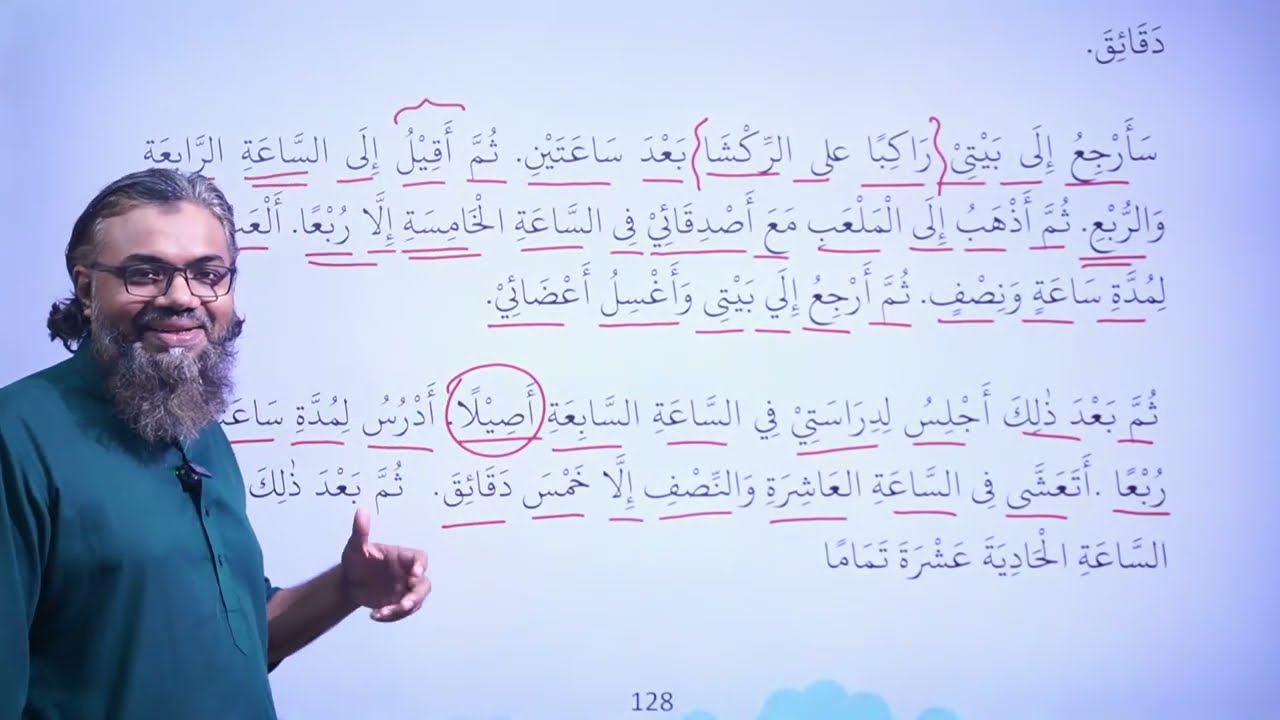 دَقَائِقَ.
سَأَرْجِعُ إِلَى بَيْتِيْ رَاكِبًا على الرِّكْشَا بَعْدَ سَاعَتَيْنِ. ثُمَّ أَقِيْلُ إِلَى السَّاعَةِ الرَّابِعَةِ
وَالرُّبْعِ. ثُمَّ أَذْهَبُ إِلَى الْمَلْعَبِ مَعَ أَصْدِقَائِيْ فِى السَّاعَةِ الْخَامِسَةِ إِلَّا رُبْعًا.
لِمُدَّةِ سَاعَةٍ وَنِصْفٍ. ثُمَّ أَرْجِعُ إِلَي بَيْتِى وَأَغْسِلُ أَعْضَائِيْ.
ثُمَّ بَعْدَ ذٰلِكَ أَجْلِسُ لِدِرَاسَتِيْ فِي السَّاعَةِ السَّابِعَةِ أَصِيْلًا. أَدْرُسُ لِمُدَّةِ
رُبْعًا .أَتَعَشَّى فِى السَّاعَةِ العَاشِرَةِ وَالنِّصْفِ إِلَّا خَمْسَ دَقَائِقَ. ثُمَّ بَعْدَ ذٰلِكَ
السَّاعَةِ الْحَادِيَةَ عَشْرَةَ تَمَامًا
128